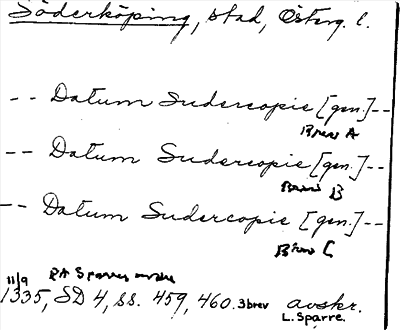 Söderköping, stad, Österg. l.
-- Datum Sudercopie [gen.]--
Brev A
-- Datum Sudercopie [gen.]--
Brev B
-- Datum Sudercopie [gen.]--
Brev C
11/9 RA Sparres
1335, SD 4, ss. 459, 460. 3 brev avskr.
L. Sparre.